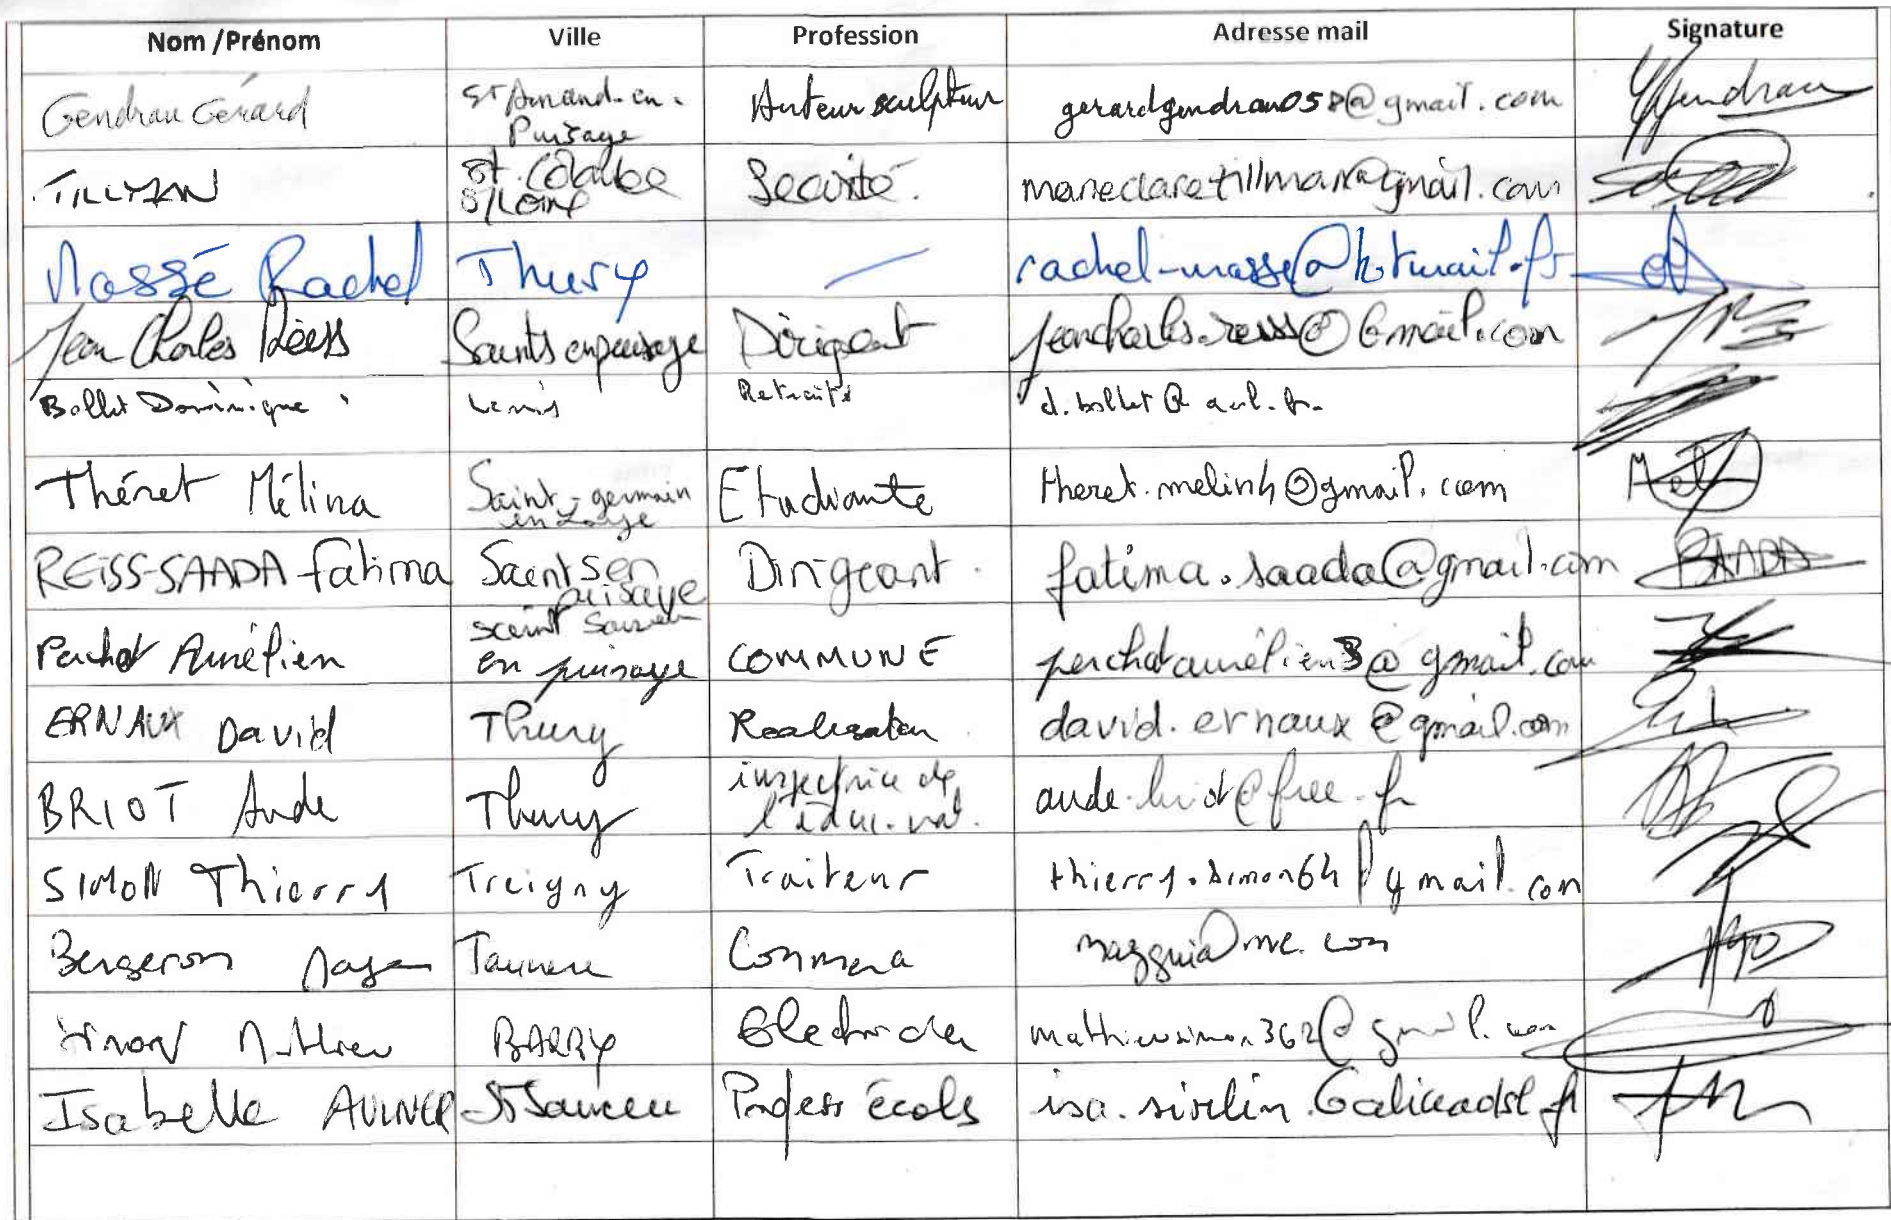 Nom /Prénom Ville Profession Adresse mail Signature
Gendrau Gérard St Amand-en-Puisaye Auteur sculpteur gerardgendrau058@gmail.com
TILLMAN St. Colombe S/Loire Sécurité. marieclaretillman@gmail.com
Massé Rachel Thury — rachel-masse@hotmail.fr
Jean Charles Reiss Saints en puisaye Dirigeant jeancharles.reiss@Gmail.com
Ballet Dominique Retraité
Théret Mélina Saint-germain en Laye Etudiante theret.melinh@gmail.com
REISS-SAADA fatima Saints en puisaye Dirigeant. fatima.saada@gmail.com SAADA
Perchot Aurélien saint Sauveur en puisaye COMMUNE perchotaurelien3@gmail.com
ERNAUX David Thury Realisateur david.ernaux@gmail.com
BRIOT Aude Thury inspectrice de l'éduc. nat. aude.briot@free.fr
SIMON Thierry Treigny Traiteur thierry.simon64 gmail.com
Bergeron
Simon Mathieu BARRY mathieusimon362@gmail.com
Isabelle St Sauveur Profess écoles